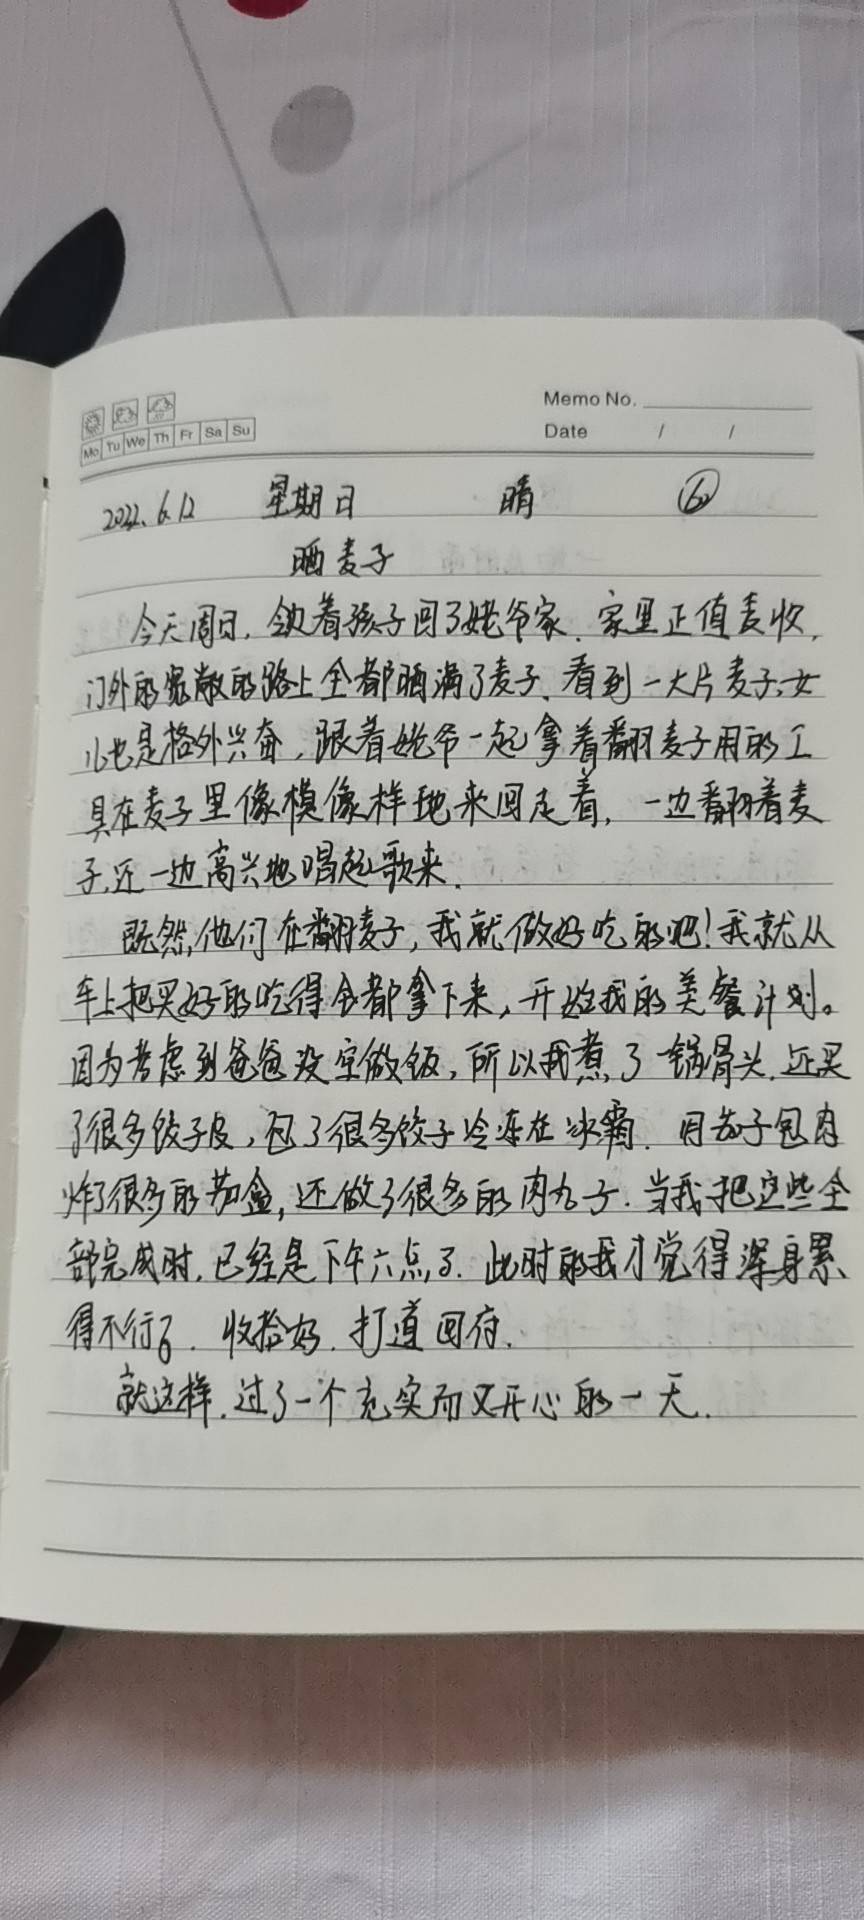 Memo No.
Mo Tu We Th Fr Sa Su
Date / /
2022.6.12 星期日 晴
晒麦子
今天周日,领着孩子回了姥爷家.家里正值麦收,
门外的宽敞的路上全都晒满了麦子.看到一大片麦子,女
儿也是格外兴奋,跟着姥爷一起拿着翻麦子用的工
具在麦子里像模像样地来回走着,一边翻着麦
子,还一边高兴地唱起歌来.
既然,他们在翻麦子,我就做好吃的吧!我就从
车上把买好的吃得全都拿下来,开始我的美餐计划。
因为考虑到爸爸没空做饭,所以我煮了一锅骨头.还买
了很多饺子皮,包了很多饺子冷冻在冰霜.用茄子包肉
炸了很多的茄盒,还做了很多的肉丸子.当我把这些全
部完成时,已经是下午六点了.此时的我才觉得浑身累
得不行了.收拾好.打道回府.
就这样.过了一个充实而又开心的一天.